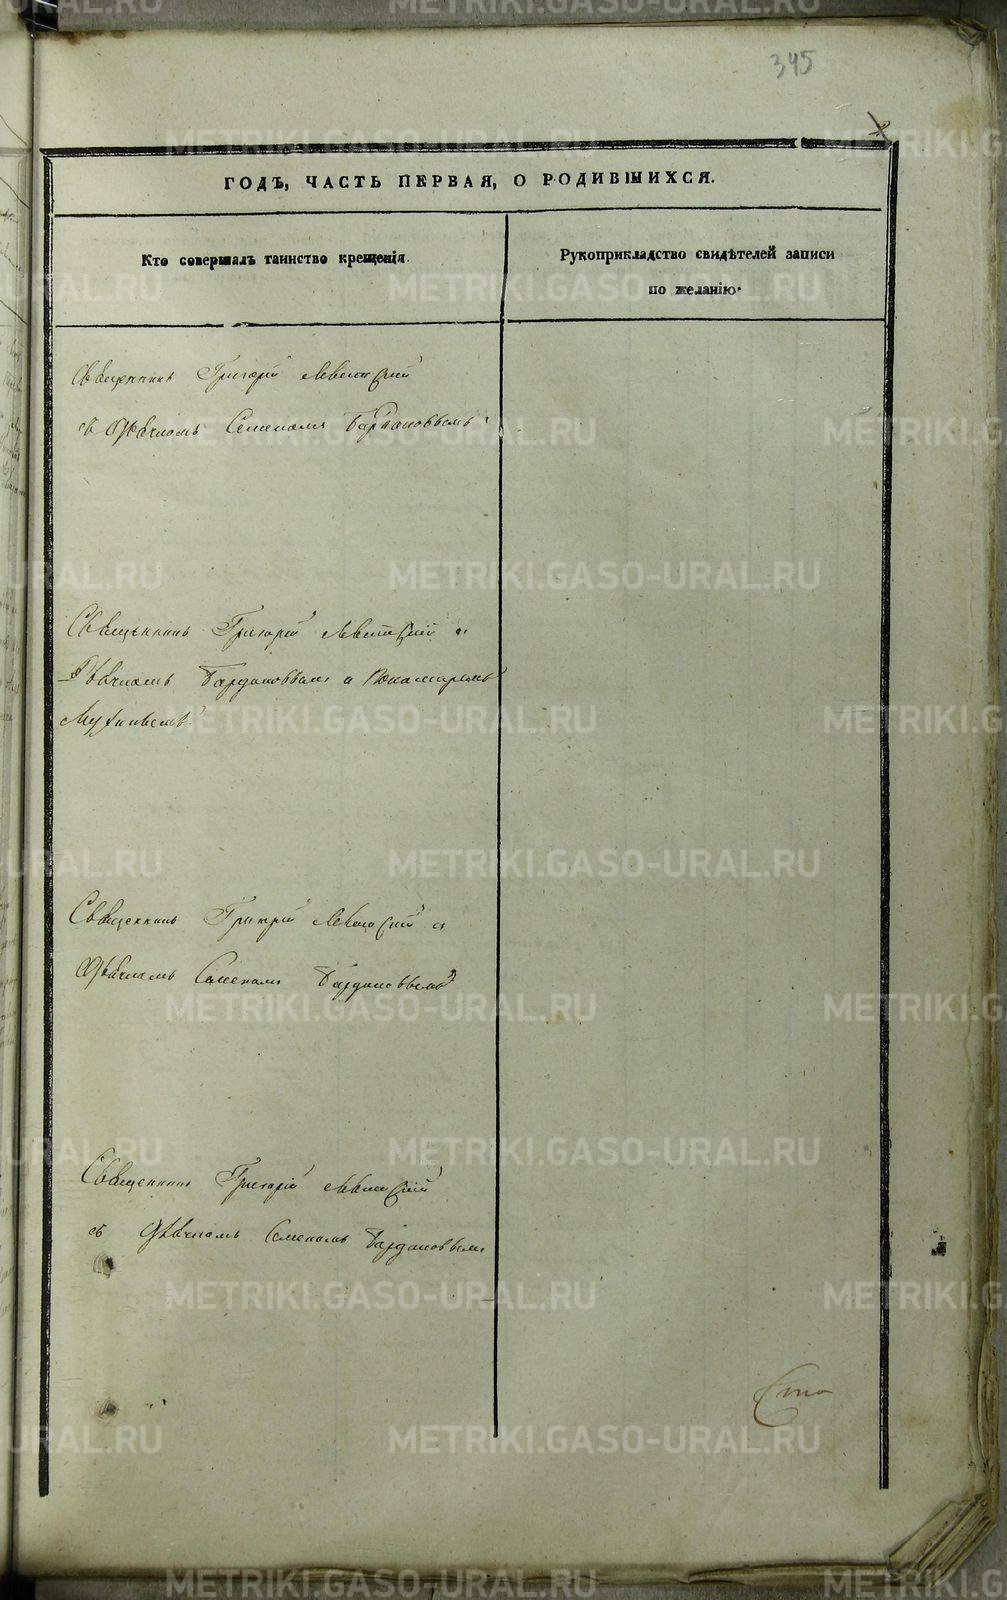 345
2
ГОДЪ, ЧАСТЬ ПЕРВАЯ, О РОДИВШИХСЯ.
Кто совершалъ таинство крещенія.
Рукоприкладство свидѣтелей записи
по желанію.
Священникъ Григорій Левитскій
съ Дьячкомъ Семеномъ Бардановымъ
Священникъ Григорій Левитскій и
Дьячкомъ Бардановымъ и Понамаремъ
Священникъ Григорій Левитскій и
Дьячкомъ Семеномъ Бардановымъ
Священникъ Григорій Левитскій
съ Дьячкомъ Семеномъ Бардановымъ
METRIKI.GASO-URAL.RU